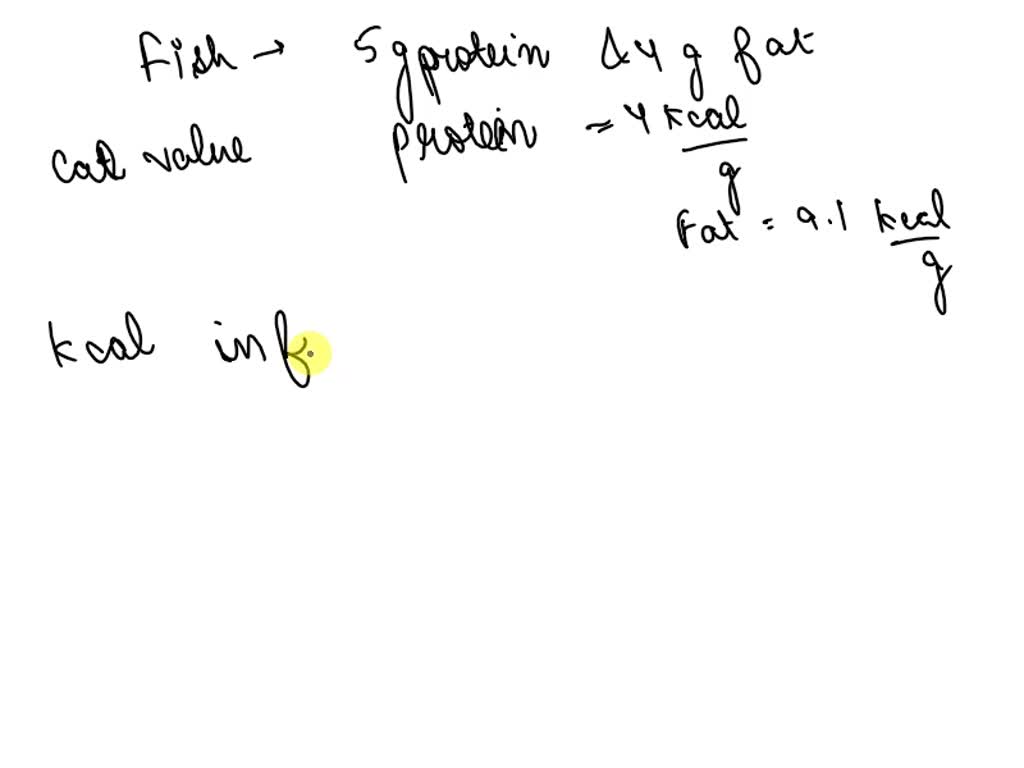 Fish → 5 g protein & 4 g fat
cal value protein = 4 kcal/g
Fat = 9.1 kcal/g
kcal in f